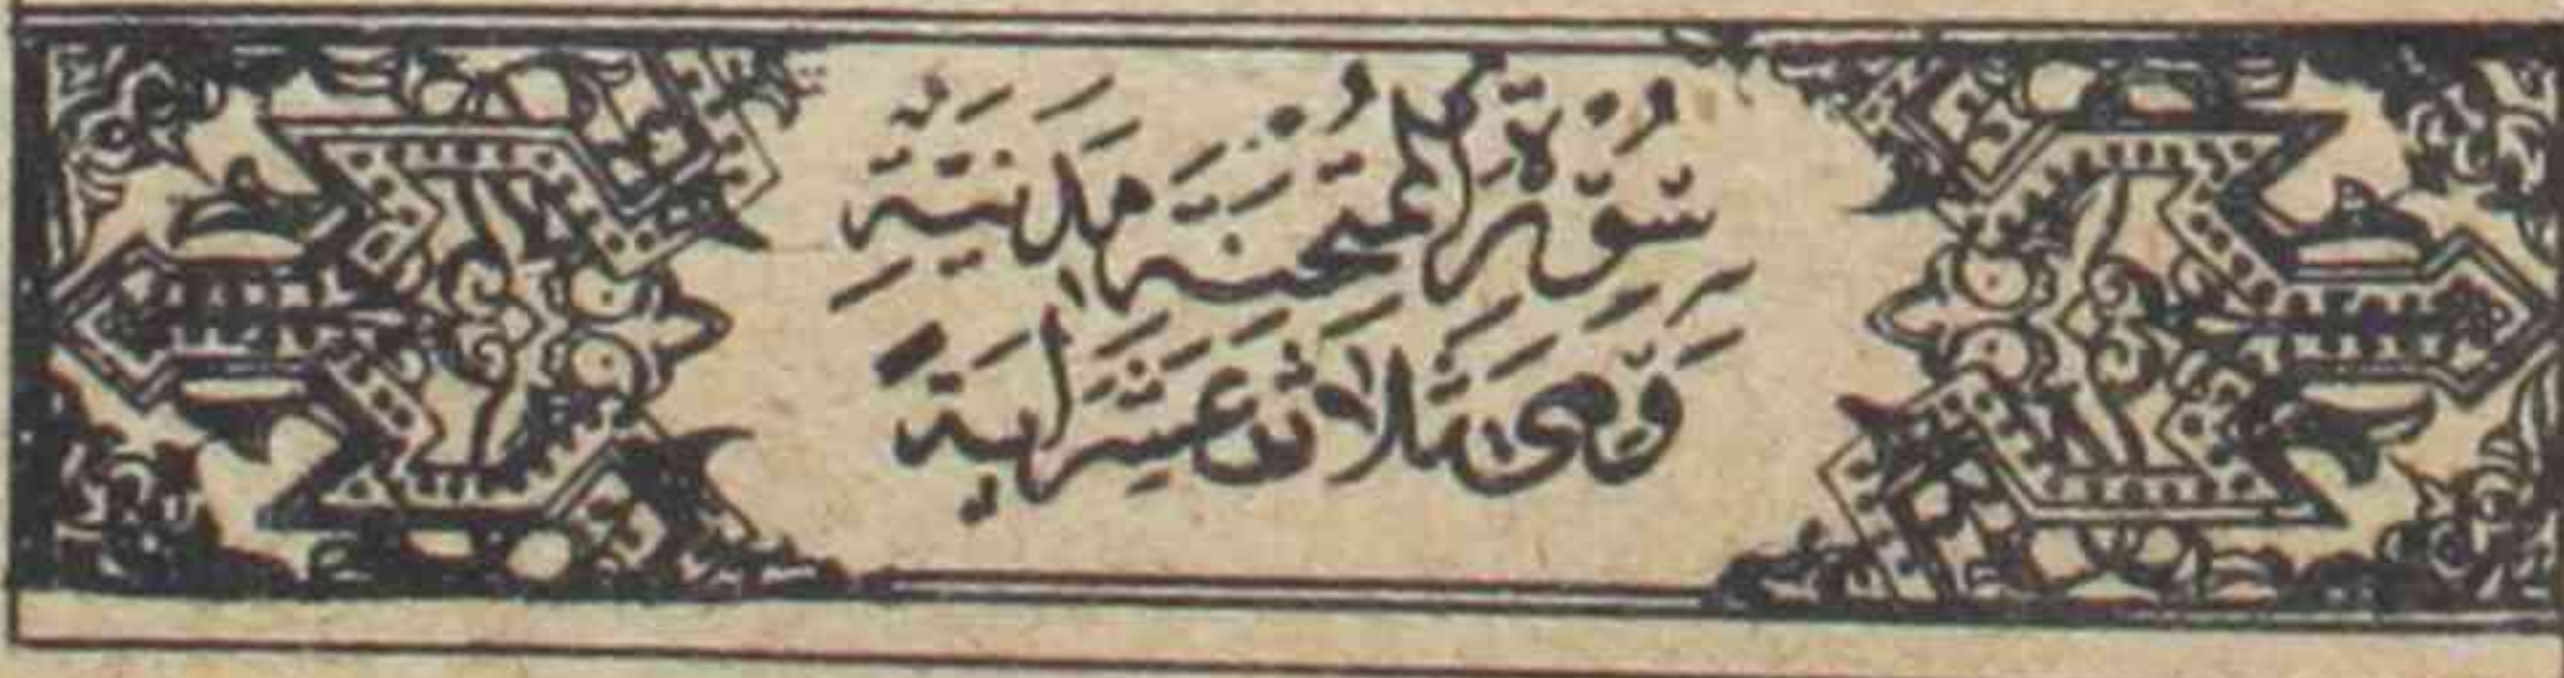 سُوْرَةُ الْمُمْتَحِنَةِ مَدَنِيَّةٌ
وَهِىَ ثَلَاثَ عَشَرَ اٰيَةً